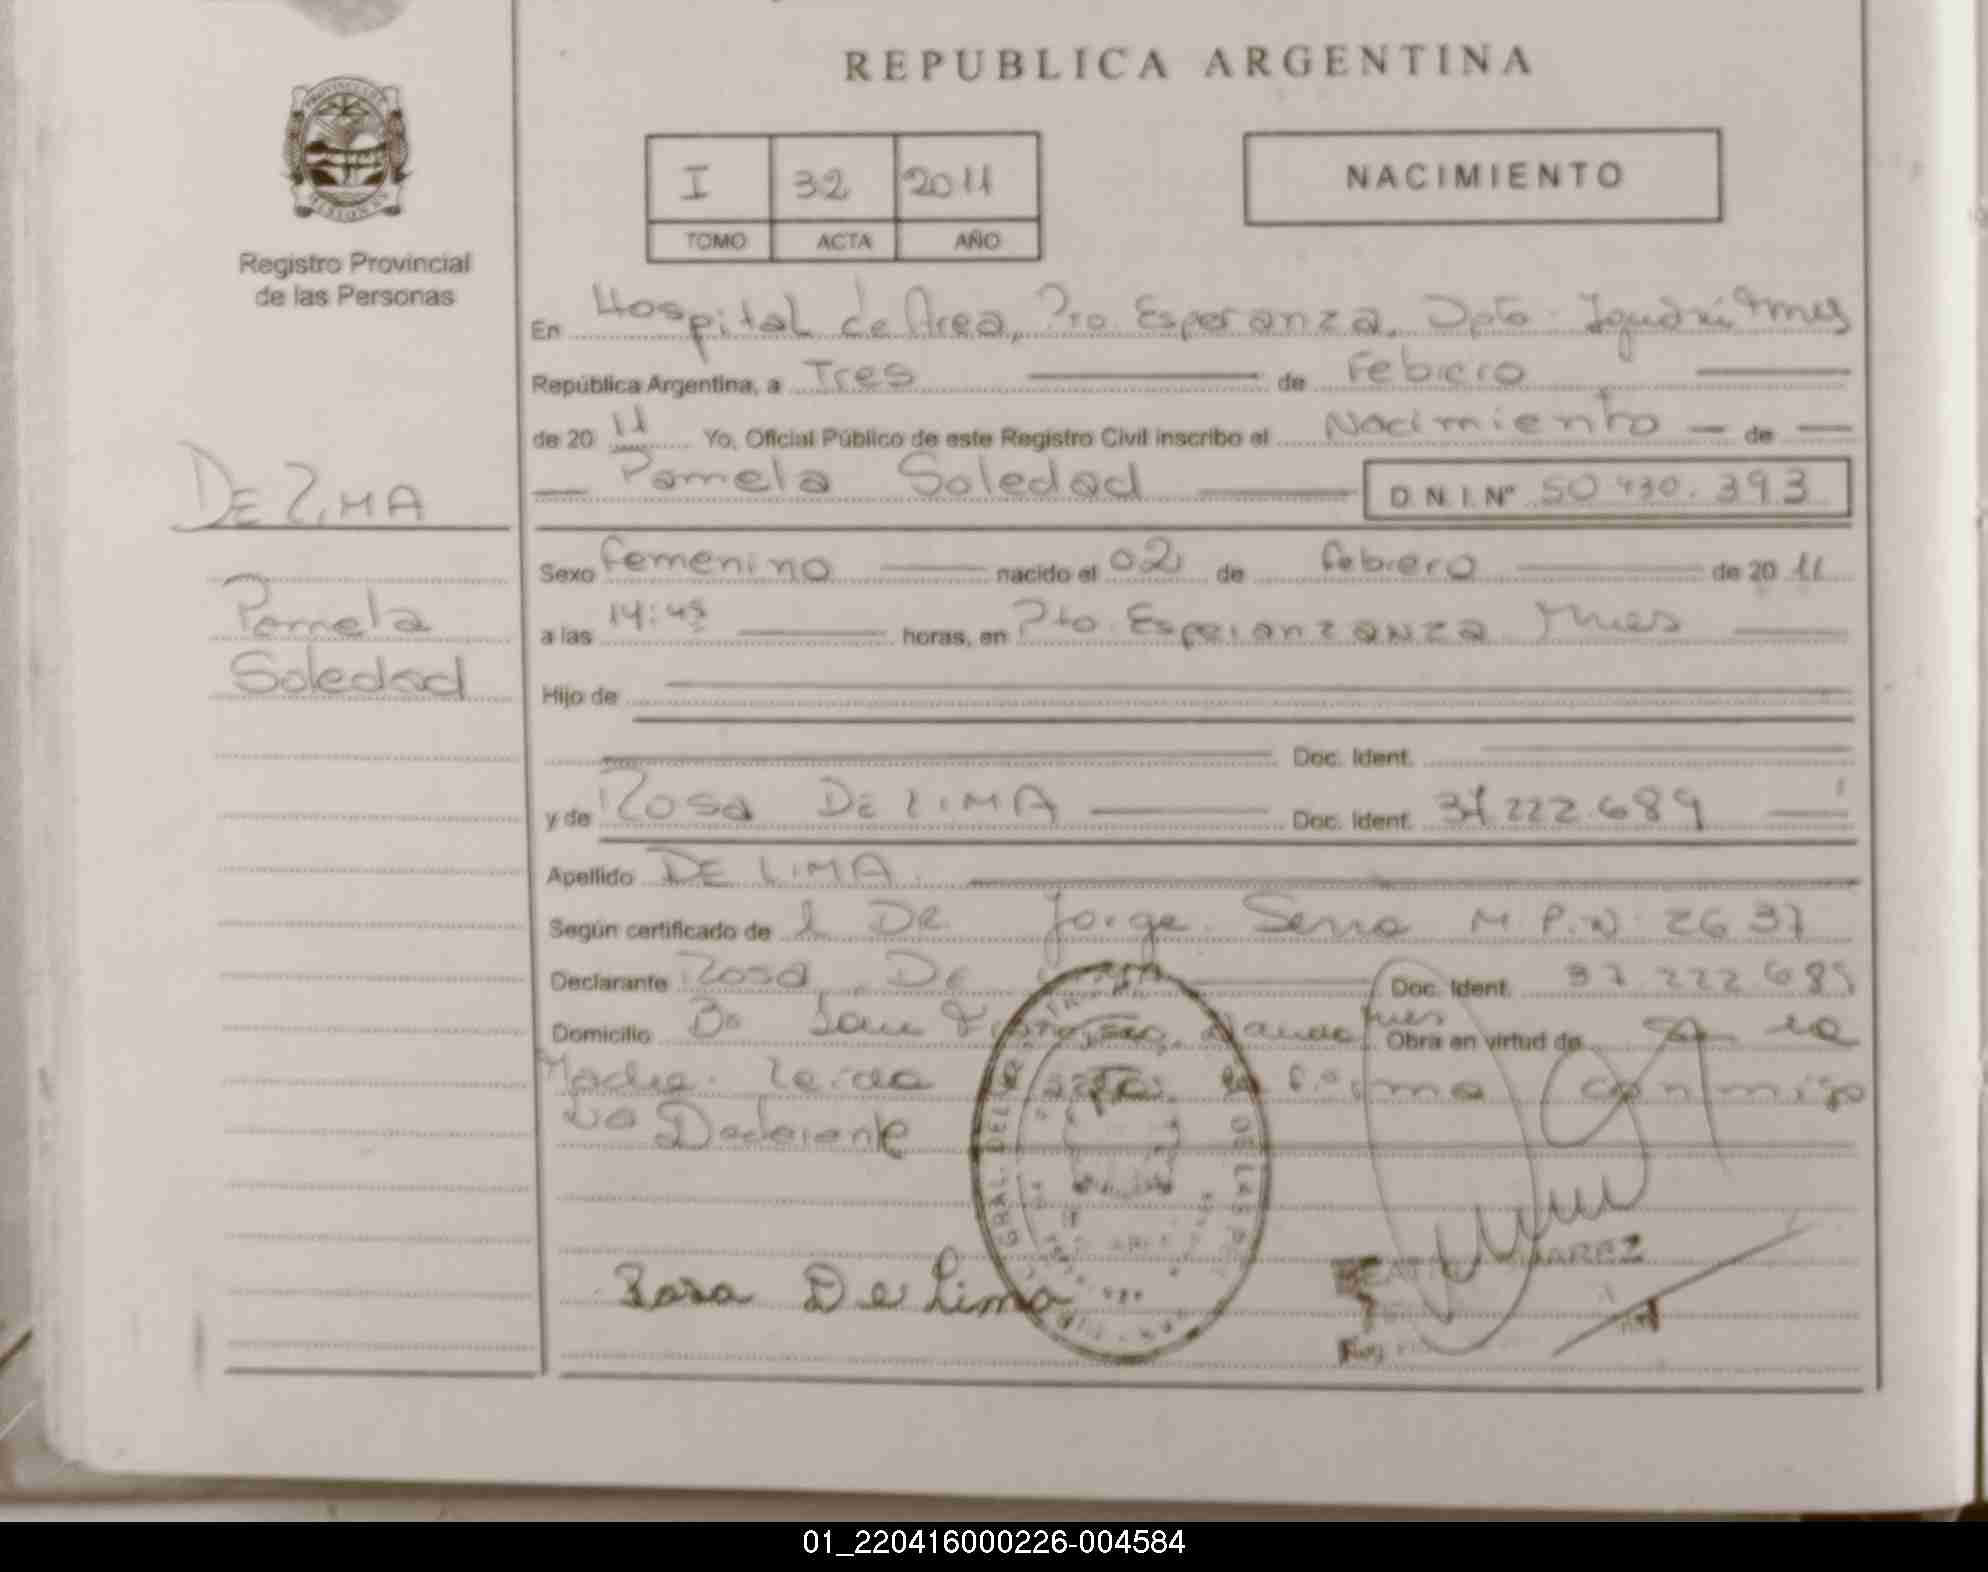 REPUBLICA ARGENTINA
Registro Provincial
de las Personas
I 32 2011
TOMO ACTA AÑO
NACIMIENTO
En Hospital de Area, Pto. Esperanza, Dpto. Iguazú Mnes
República Argentina, a Tres de Febrero
de 20 11 Yo, Oficial Público de este Registro Civil inscribo el Nacimiento de
Pamela Soledad D. N. I. Nº 50 430.393
DE LIMA
Pamela
Soledad
Sexo femenino nacido el 02 de febrero de 20 11
a las 14:45 horas, en Pto. Esperanza Mnes
Hijo de
Doc. Ident.
y de Rosa DE LIMA Doc. Ident. 37.222.689
Apellido DE LIMA
Según certificado de l DR. Jorge Serra M.P.N. 2637
Declarante Rosa De Doc. Ident. 37.222.689
Domicilio Bo San Obra en virtud de la
Madre. Leida el acta, la firma conmigo
La Declarante
Rosa De Lima
01_220416000226-004584